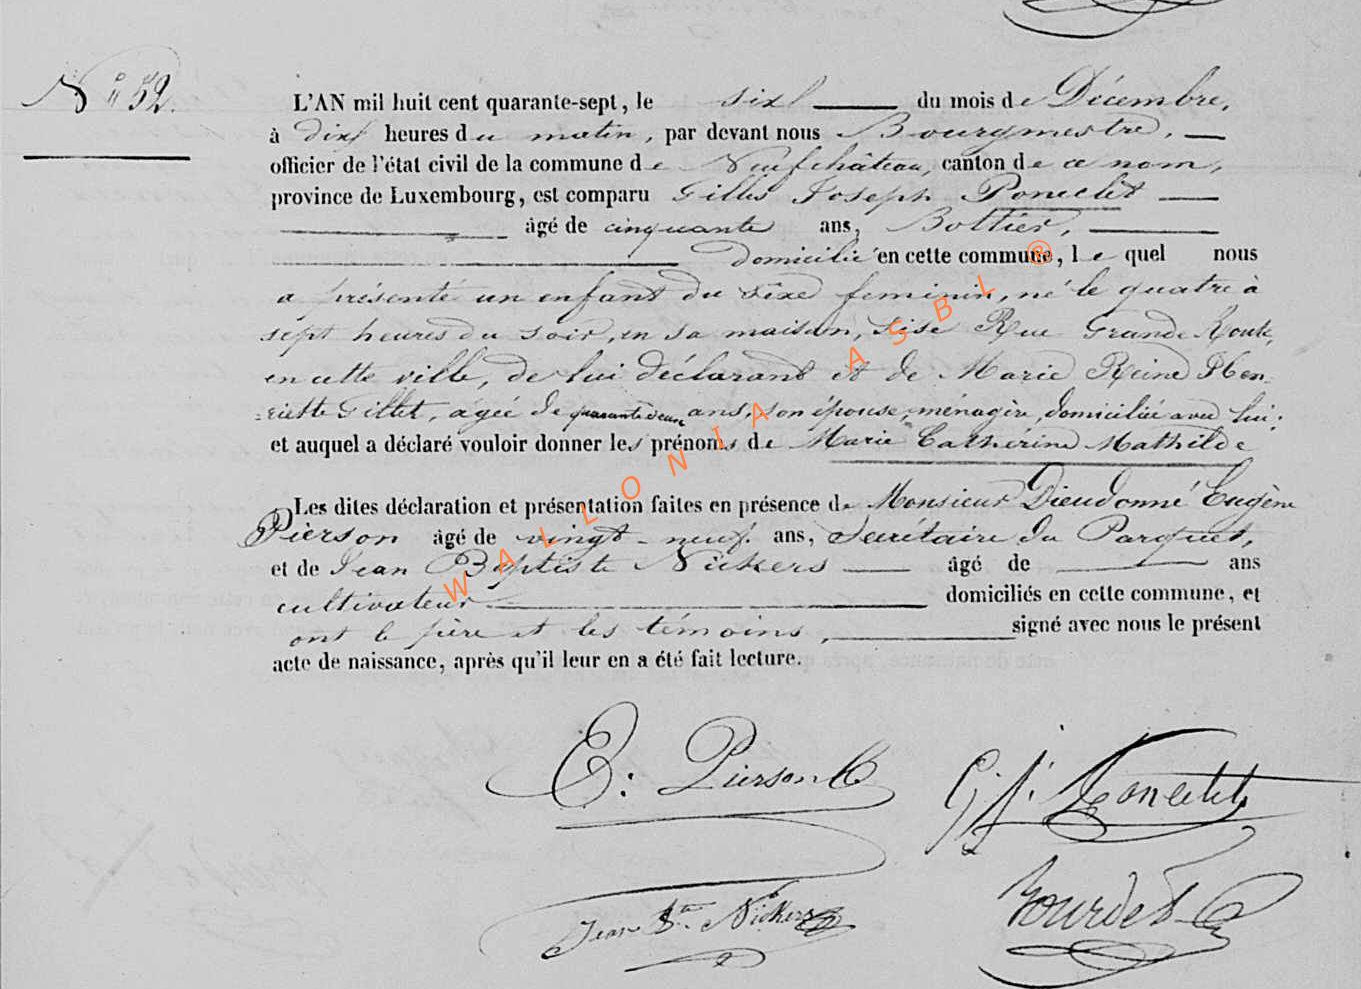 N° 52.
L'AN mil huit cent quarante-sept, le six du mois de Décembre,
à dix heures du matin, par devant nous Bourgmestre,
officier de l'état civil de la commune de Neufchâteau, canton de ce nom,
province de Luxembourg, est comparu Gilles Joseph Poncelet
âgé de cinquante ans, Bottier,
domicilié en cette commune, le quel nous
a présenté un enfant du sexe feminin, né le quatre à
sept heures du soir, en sa maison, sise Rue Grande Route,
en cette ville, de lui déclarant et de Marie Reine Hen-
riette Gillet, agée de quarante deux ans, son épouse, ménagère, domiciliée avec lui;
et auquel a déclaré vouloir donner les prénoms de Marie Catherine Mathilde
Les dites déclaration et présentation faites en présence de Monsieur Dieudonné Eugène
Pierson âgé de vingt-neuf ans, Secrétaire du Parquet,
et de Jean Baptiste Nickers âgé de ans
cultivateur domiciliés en cette commune, et
ont le père et les témoins, signé avec nous le présent
acte de naissance, après qu'il leur en a été fait lecture.
WALLONIA ASBL ®
E: Pierson
G. J. Poncelet
Jean Bte Nickers
Bourdet